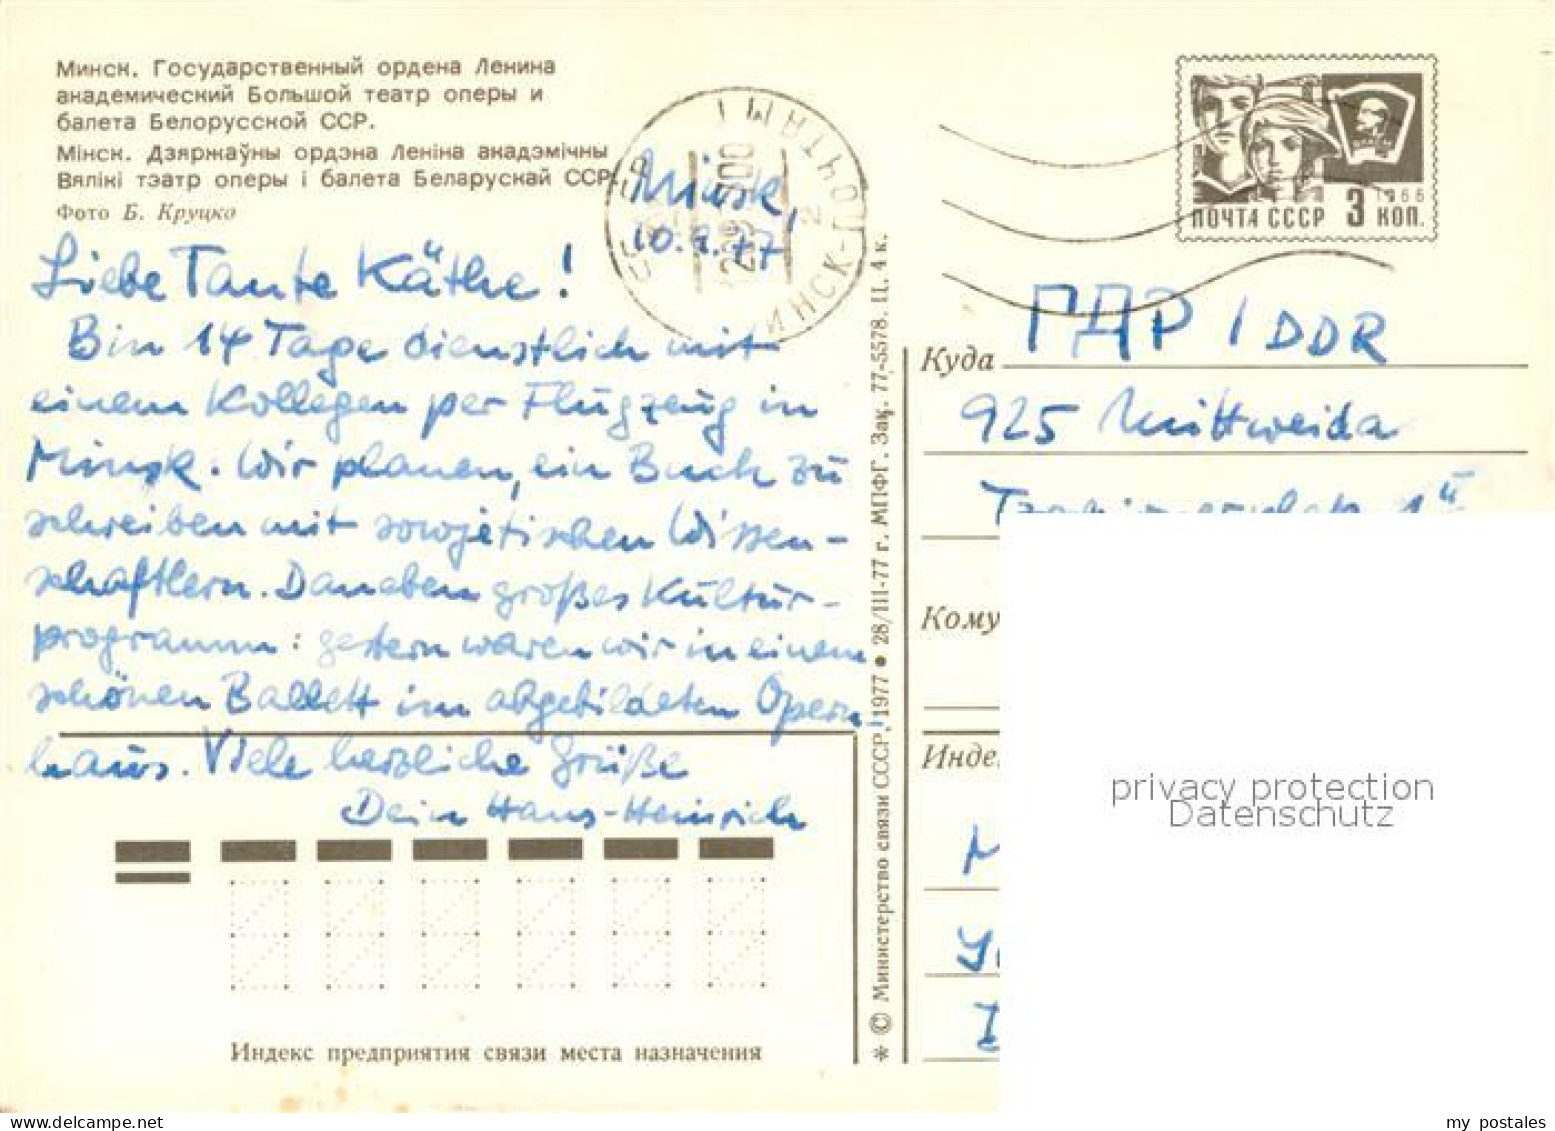 Минск. Государственный ордена Ленина
академический Большой театр оперы и
балета Белорусской ССР.
Мінск. Дзяржаўны ордэна Леніна акадэмічны
Вялікі тэатр оперы і балета Беларускай ССР.
Фото Б. Круцко
Minsk,
10.9.77
Liebe Tante Käthe!
Bin 14 Tage dienstlich mit
einem Kollegen per Flugzeug in
Minsk. Wir planen, ein Buch zu
schreiben mit sowjetischen Wissen-
schaftlern. Daneben großes Kultur-
programm: gestern waren wir in einem
schönen Ballett im abgebildeten Opern
haus. Viele herzliche Grüße
Dein Hans-Heinrich
Индекс предприятия связи места назначения
* © Министерство связи СССР, 1977 • 28/III-77 г. МПФГ. Зак. 77-5578. Ц. 4 к.
МИНСК-ПОЧТАМТ
1966
ПОЧТА СССР 3 КОП.
Куда ГДР / DDR
925 Mittweida
Кому
Инде
privacy protection
Datenschutz
my postales